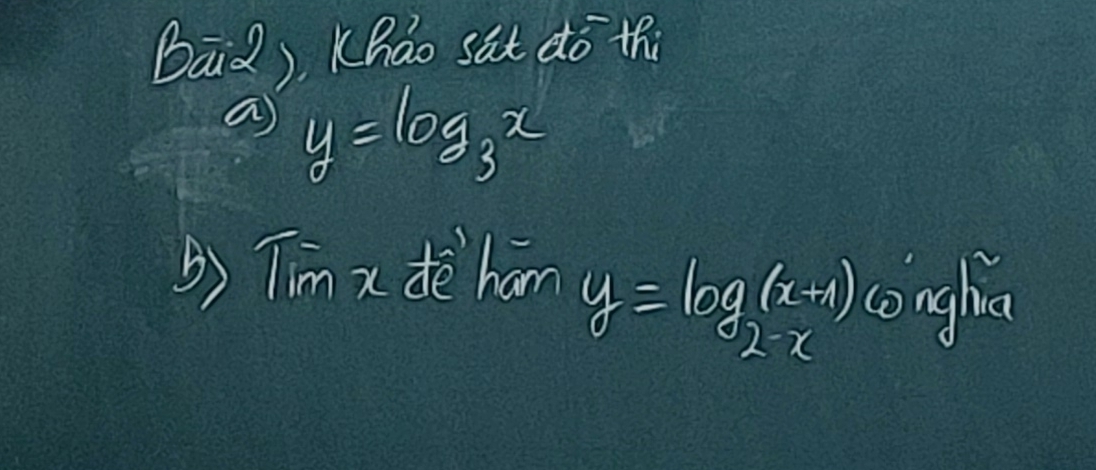 Bài 2), Khảo sát đồ thị
a) y = log₃x
b) Tìm x để hàm y = log₂₋ₓ(x+1) có nghĩa